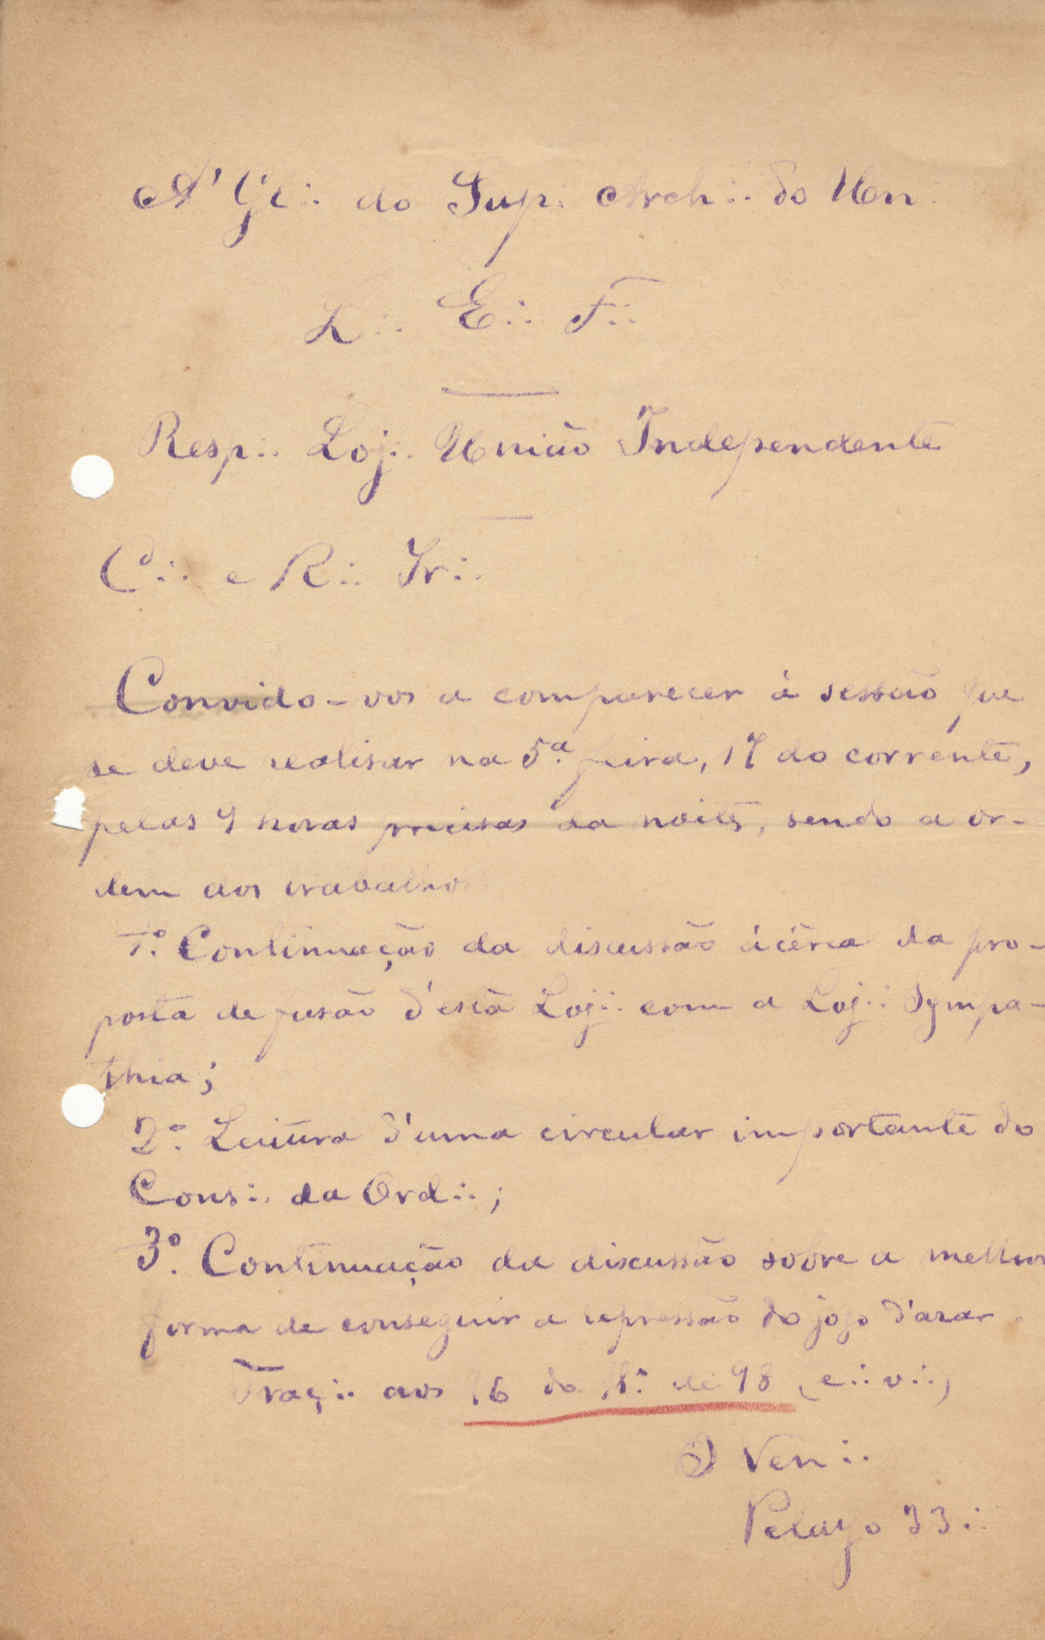 A' Gl∴ do Sup∴ Arch∴ do Un∴
L∴ E∴ F∴
Resp∴ Loj∴ União Independente
C∴ e R∴ Ir∴
Convido-vos a comparecer á sessão que
se deve realisar na 5ª feira, 17 do corrente,
pelas horas precisas da noite, sendo a or-
dem dos trabalhos
1.º Continuação da discussão ácêrca da pro-
posta de fusão d'esta Loj∴ com a Loj∴ Sympa-
thia;
2.º Leitura d'uma circular importante do
Cons∴ da Ord∴;
3.º Continuação da discussão sobre a melhor
forma de conseguir a repressão do jogo d'azar.
Traç∴ aos 16 do de 98 (e∴ v∴)
O Ven∴
Pelayo 33∴